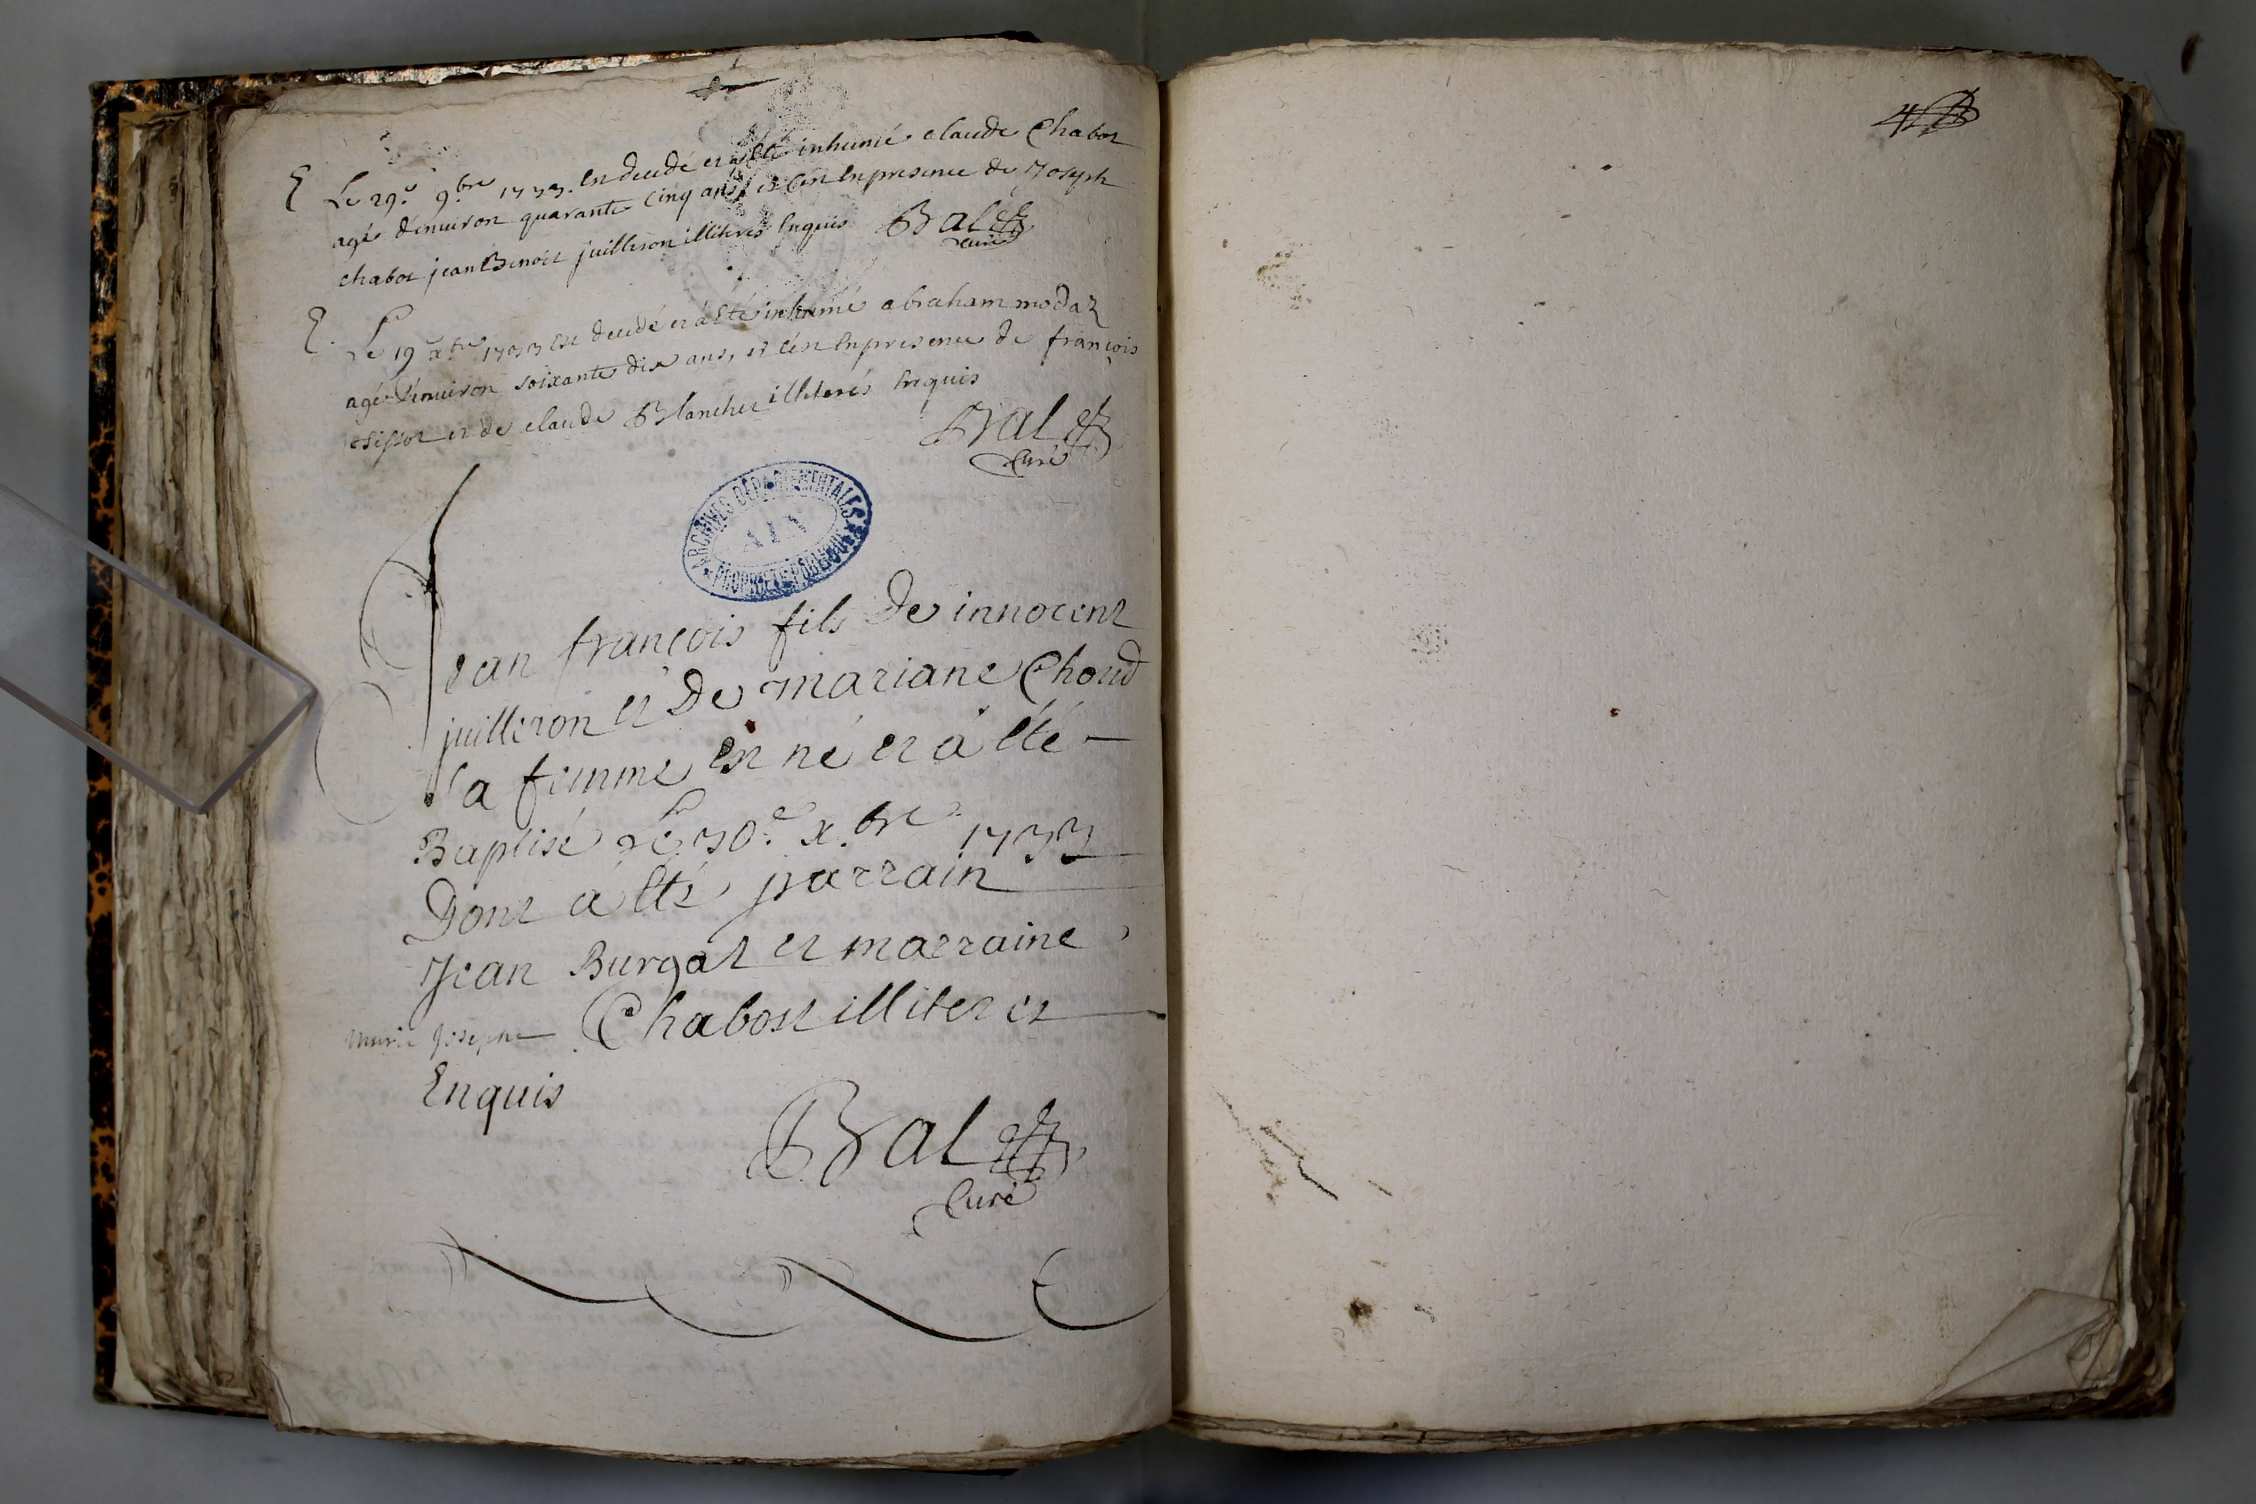 E Le 29.e 9.bre 1733. est decedé et a été inhumé claude Chabot
agé d'environ quarante cinq ans, et c'est en presence de Joseph
chabot jean Benoit juilleron illiteres enquis Bal
curé
E. Le 19.e x.bre 1733 est decedé et a été inhumé abraham modaz
agé d'environ soixante dix ans, et c'est en presence de françois
et de claude Blanchet illiterés enquis
Bal
Curé
ARCHIVES DÉPARTEMENTALES
AIN
PROPRIÉTÉ PUBLIQUE
Jean françois fils de innocent
juilleron et de mariane Choud
sa femme est né et a été
Baptisé Le 30.e x.bre 1733
Dont a été parrain
Jean Burgat et marraine
marie Josephe Chabost illiteres
Enquis
Bal
Curé